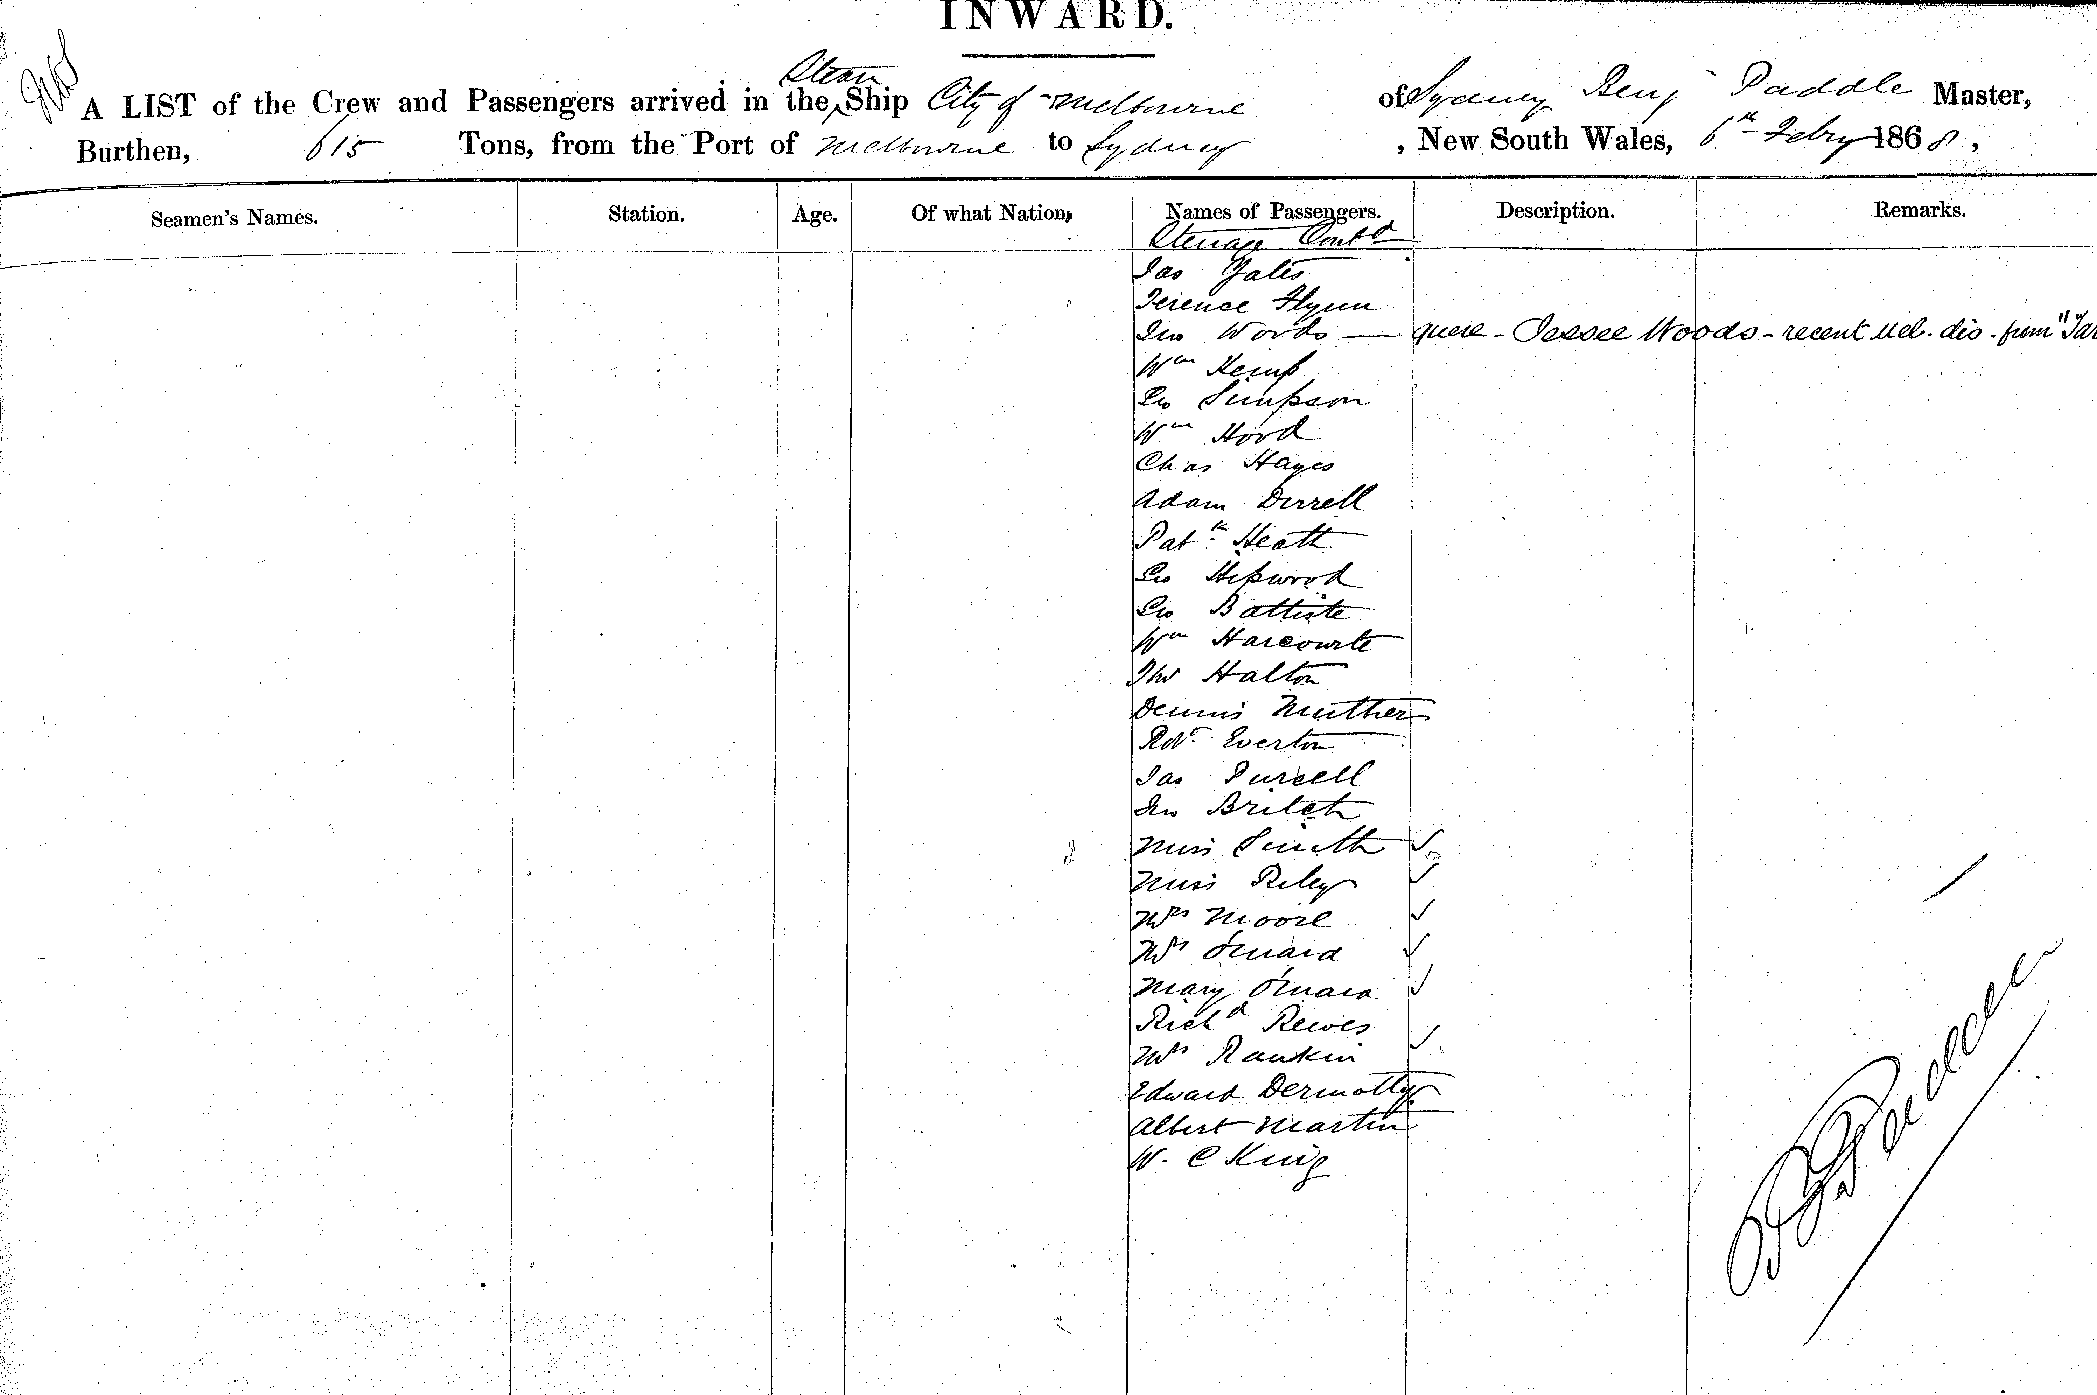 INWARD.
A LIST of the Crew and Passengers arrived in the Steam Ship City of Melbourne of Sydney Benj Paddle Master,
Burthen, 615 Tons, from the Port of Melbourne to Sydney , New South Wales, 6th Febry 1868,
Seamen's Names. Station. Age. Of what Nation, Names of Passengers. Description. Remarks.
Steerage Contd
Jas Yates
Terence Flynn
Jno Woods — quere - Jessee Woods - recent dis. from "Tar
Wm Kemp
Geo Simpson
Wm Hood
Chas Hayes
Adam Dirrell
Patk Heath
Geo Hipwood
Geo Battiste
Wm Harcourte
Thos Halton
Dennis Muther
Robt Everton
Jas Purcell
Jno Britch
Miss Smith ✓
Miss Riley ✓
Mrs Moore ✓
Mrs O'Mara ✓
Mary O'Mara ✓
Richd Reeves
Mrs Rankin ✓
Edward Dermotty
Albert Martin
W. C King
B Paddle